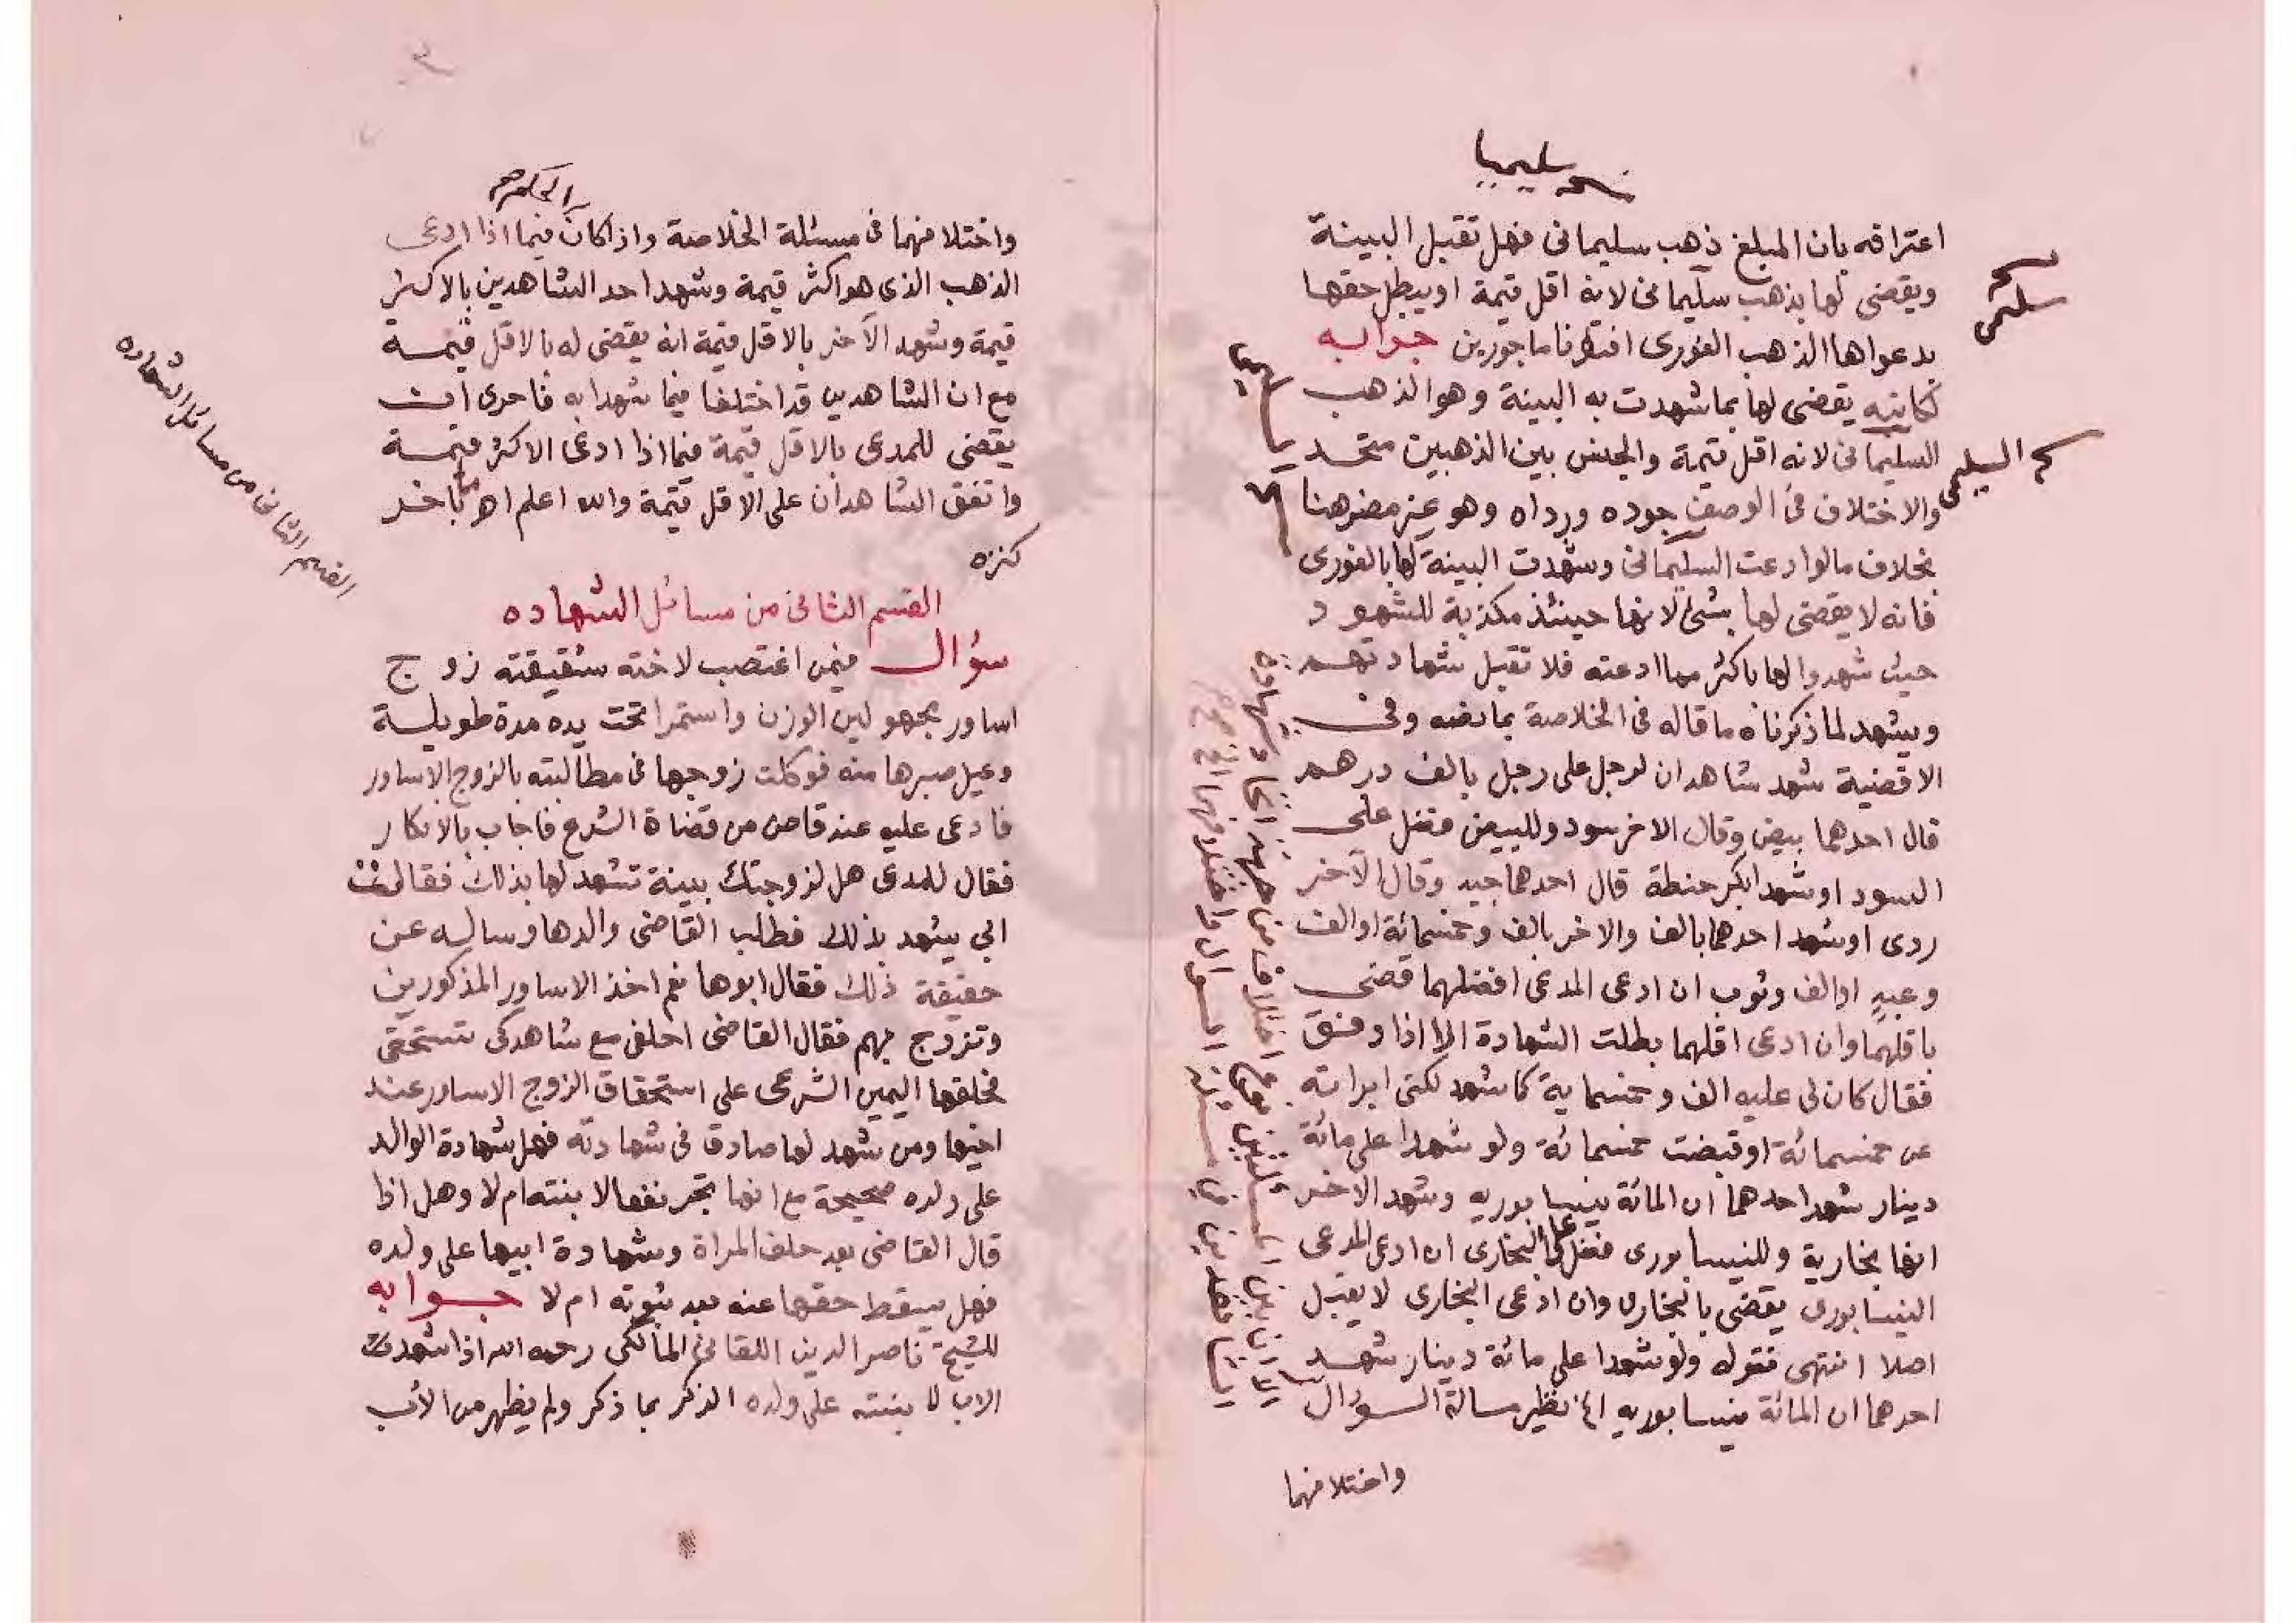 نسخه سليميا
اعترافه بان المبلغ ذهب سليمانى فهل تقبل البينة
ويقضى لها بذهب سليمانى لانه اقل قيمة او يبطل حقها
بدعواها الذهب الغورى افتونا ماجورين جوابه
كاتبه يقضى لها بما شهدت به البينة وهو الذهب
السليمانى لانه اقل قيمة والجنس بين الذهبين متحد
والاختلاف فى الوصف جوده ورداه وهو غير مضر هنا
بخلاف ما لوادعت السليمانى وشهدت البينة لها بالغورى
فانه لا يقضى لها بشئ لانها حينئذ مكذبة للشهود
حيث شهدوا لها باكثر مما ادعته فلا تقبل شهادتهم
ويشهد لما ذكرناه ما قاله فى الخلاصة بما نصه وفى
الاقضية شهد شاهدان لرجل على رجل بالف درهم
قال احدهما بيض وقال الاخر سود وللبيض فضل على
السود او شهدا بكر حنطة قال احدهما جيد وقال الآخر
ردى او شهد احدهما بالف والاخر بالف وخمسمائة او الف
وعبد او الف وثوب ان ادعى المدعى افضلهما قضى
باقلهما وان ادعى اقلهما بطلت الشهادة الا اذا وفق
فقال كان لى عليه الف وخمسماية كما شهد لكنى ابراته
عن خمسمائة او قبضت خمسمائة ولو شهدا على مائة
دينار شهد احدهما ان المائة نيسابوريه وشهد الاخر
انها بخارية وللنيسابورى فضل على البخارى ان ادعى المدعى
النيسابورى يقضى بالبخارى وان ادعى البخارى لا يقبل
اصلا انتهى فقوله ولو شهدا على مائة دينار شهد
احدهما ان المائة نيسابوريه الخ نظير مسالة السؤال
واختلافهما
نسخه سليمى
السليمى
واختلافهما فى مسئلة الخلاصة واذا كان فيما اذا ادعى
الذهب الذى هو اكثر قيمة وشهد احد الشاهدين بالاكثر
قيمة وشهد الآخر بالاقل قيمة انه يقضى له بالاقل قيمة
مع ان الشاهدين قد اختلفا فيما شهدا به فاحرى ان
يقضى للمدعى بالاقل قيمة فيما اذا ادعى الاكثر قيمة
واتفق الشاهدان على الاقل قيمة والله اعلم اهـ
القسم الثانى من مسائل الشهاده
القسم الثانى من مسائل الشهاده
سؤال فيمن اغتصب لاخته شقيقته زوج
اساور مجهولين الوزن واستمرا تحت يده مدة طويلة
وعيل صبرها منه فوكلت زوجها فى مطالبته بالزوج الاساور
فادعى عليه عند قاض من قضاة الشرع فاجاب بالانكار
فقال للمدعى هل لزوجتك بينة تشهد لها بذلك فقالت
ابى يشهد بذلك فطلب القاضى والدها وساله عن
حقيقة ذلك فقال ابوها نعم اخذ الاساور المذكورين
وتزوج بهم فقال القاضى احلفى مع شاهدكى تستحقى
فحلفها اليمين الشرعى على استحقاق الزوج الاساور عند
اخيها ومن شهد لها صادق فى شهادته فهل شهادة الوالد
على ولده صحيحة مع انها تجر نفعا لابنته ام لا وهل اذا
قال القاضى بعد حلف المراة وشهادة ابيها على ولده
فهل يسقط حقها عنه بعد ثبوته ام لا جوابه
للشيخ ناصر الدين اللقانى المالكى رحمه الله اذا شهد
الاب لابنته على ولده الذكر بما ذكر ولم يظهر من الأب